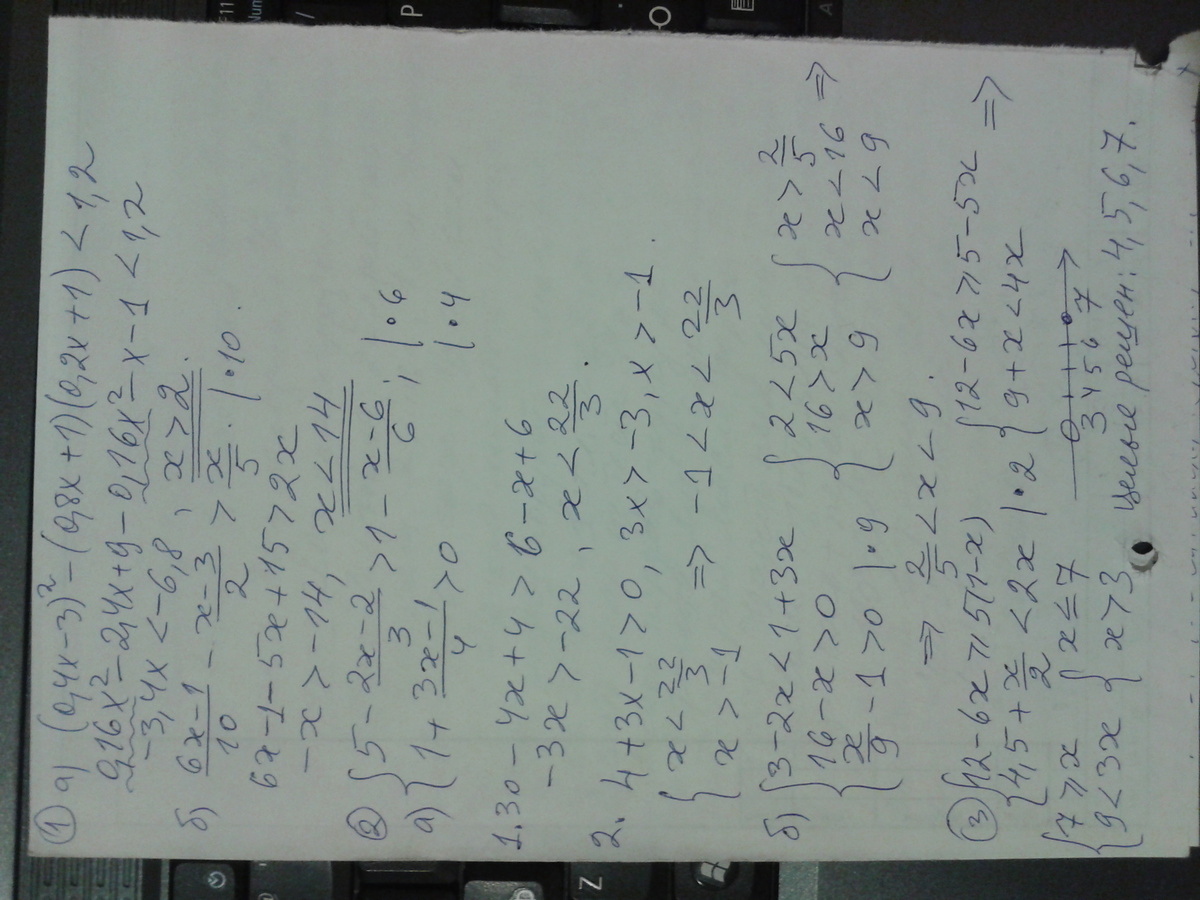 ① а) (0,4x-3)² - (0,8x+1)(0,2x+1) < 1,2
0,16x² - 2,4x + 9 - 0,16x² - x - 1 < 1,2
-3,4x < -6,8, x > 2.
б) (6x-1)/10 - (x-3)/2 > x/5. |·10.
6x - 1 - 5x + 15 > 2x
-x > -14, x < 14
② а) { 5 - (2x-2)/3 > 1 - (x-6)/6; |·6
{ 1 + (3x-1)/4 > 0 |·4
1. 30 - 4x + 4 > 6 - x + 6
-3x > -22, x < 22/3.
2. 4 + 3x - 1 > 0, 3x > -3, x > -1
{ x < 22/3
{ x > -1 => -1 < x < 22/3.
б) { 3 - 2x < 1 + 3x { 2 < 5x { x > 2/5
{ 16 - x > 0 { 16 > x { x < 16 =>
{ x/9 - 1 > 0 |·9 { x > 9 { x < 9
=> 2/5 < x < 9.
③ { 12 - 6x ⩾ 5(1-x) { 12 - 6x ⩾ 5 - 5x
{ 4,5 + x/2 < 2x |·2 { 9 + x < 4x =>
{ 7 ⩾ x { x ≤ 7
{ 9 < 3x { x > 3
3 4 5 6 7
Целые решен: 4, 5, 6, 7.
F11
Num
P
O
A
Z